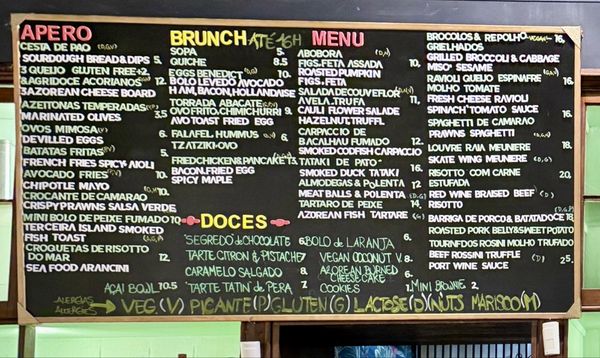 APERO
CESTA DE PAO (D,G,V)
SOURDOUGH BREAD & DIPS 5.
3 QUEIJO GLUTEN FREE +2.
& AGRIDOCE ACORIANOS 12.
SAZOREAN CHEESE BOARD
AZEITONAS TEMPERADAS (V)
MARINATED OLIVES 3,5
OVOS MIMOSA (V)
DEVILLED EGGS 6.
BATATAS FRITAS (V)
FRENCH FRIES SPICY AIOLI 5.
AVOCADO FRIES (V) 10.
CHIPOTLE MAYO
CROCANTE DE CAMARAO 10.
CRISPY PRAWNS SALSA VERDE
MINI BOLO DE PEIXE FUMADO 10
TERCEIRA ISLAND SMOKED
FISH TOAST
CROQUETAS DE RISOTTO
DO MAR 12.
SEA FOOD ARANCINI
BRUNCH ATÉ 16H
SOPA 5.
QUICHE 8.5
EGGS BENEDICT 10.
BOLO LEVEDO AVOCADO
HAM, BACON, HOLLANDAISE
TORRADA ABACATE
OVO FRITO CHIMICHURRI 9.
AVO TOAST FRIED EGG
FALAFEL HUMMUS 9.
TZATZIKI-OVO
FRIED CHICKEN & PANCAKE 13.
BACON, FRIED EGG
SPICY MAPLE
DOCES
"SEGREDO" de CHOCOLATE 6.
TARTE CITRON & PISTACHE 7
CARAMELO SALGADO 8
AÇAI BOWL 10.5
"TARTE TATIN" de PERA 7.
BOLO de LARANJA 6.
VEGAN COCONUT V. 8.
AZOREAN BURNED
CHEESE CAKE 8.
COOKIES 1.
MINI BROWNIE 2.
MENU
ABOBORA (D,N)
FIGS. FETA ASSADA 10.
ROASTED PUMPKIN
FIGS. FETA
SALADA DE COUVE FLOR
AVELA. TRUFA 11.
CAULI FLOWER SALADE
HAZELNUT, TRUFFL
CARPACCIO DE
BACALHAU FUMADO 12.
SMOKED CODFISH CARPACCIO
TATAKI DE PATO
SMOKED DUCK TATAKI 16.
ALMODEGAS & POLENTA 12.
MEAT BALLS & POLENTA (D,G)
TARTARO DE PEIXE 14.
AZOREAN FISH TARTARE (G)
BROCOLIS & REPOLHO VEGAN 16.
GRIELHADOS
GRILLED BROCCOLI & CABBAGE
MISO SESAME
RAVIOLI QUEIJO ESPINAFRE
MOLHO TOMATE 16.
FRESH CHEESE RAVIOLI
SPINACH TOMATO SAUCE
SPAGHETTI DE CAMARAO 16.
PRAWNS SPAGHETTI
LOUVRE RAIA MEUNIERE 18.
SKATE WING MEUNIERE (D,G)
RISOTTO COM CARNE 20.
ESTUFADA
RED WINE BRAISED BEEF (D)
RISOTTO
BARRIGA DE PORCO & BATATA DOCE 18.
ROASTED PORK BELLY & SWEET POTATO
TOURNEDOS ROSINI MOLHO TRUFADO
BEEF ROSSINI TRUFFLE (D) 25.
PORT WINE SAUCE
ALERGIAS
ALLERGIES
VEG. (V) PICANTE (P) GLUTEN (G) LACTOSE (D) NUTS MARISCO (M)